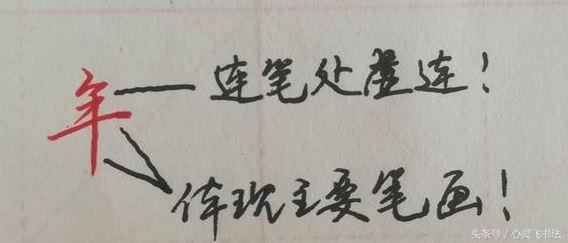 年
连笔处虚连!
体现主要笔画!
头条号/心灵飞书法